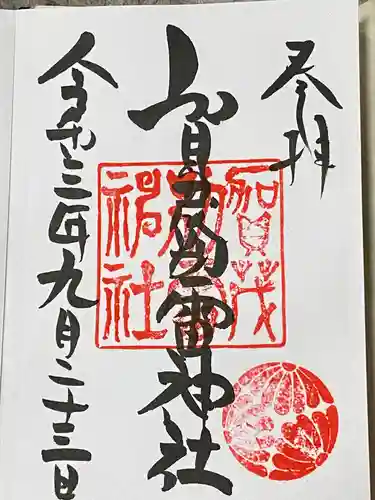 奉拝
賀茂別雷神社
令和三年九月二十三日
賀茂
神社